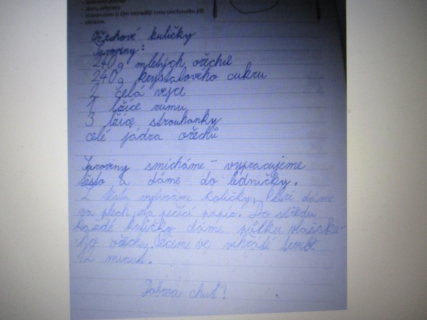 Ořechové kuličky
suroviny:
240g mletých ořechů
240g krystalového cukru
2 celá vejce
1 lžíce rumu
3 lžíce strouhanky
celé jádra ořechů
Suroviny smícháme - vypracujeme
těsto a dáme do ledničky.
Z těsta kuličky, které dáme
na plech na pečící papír. Do středu
každé kuličky dáme půlku vlašské-
ho ořechu. Pečeme ve
12 minut.
Dobrou chuť!